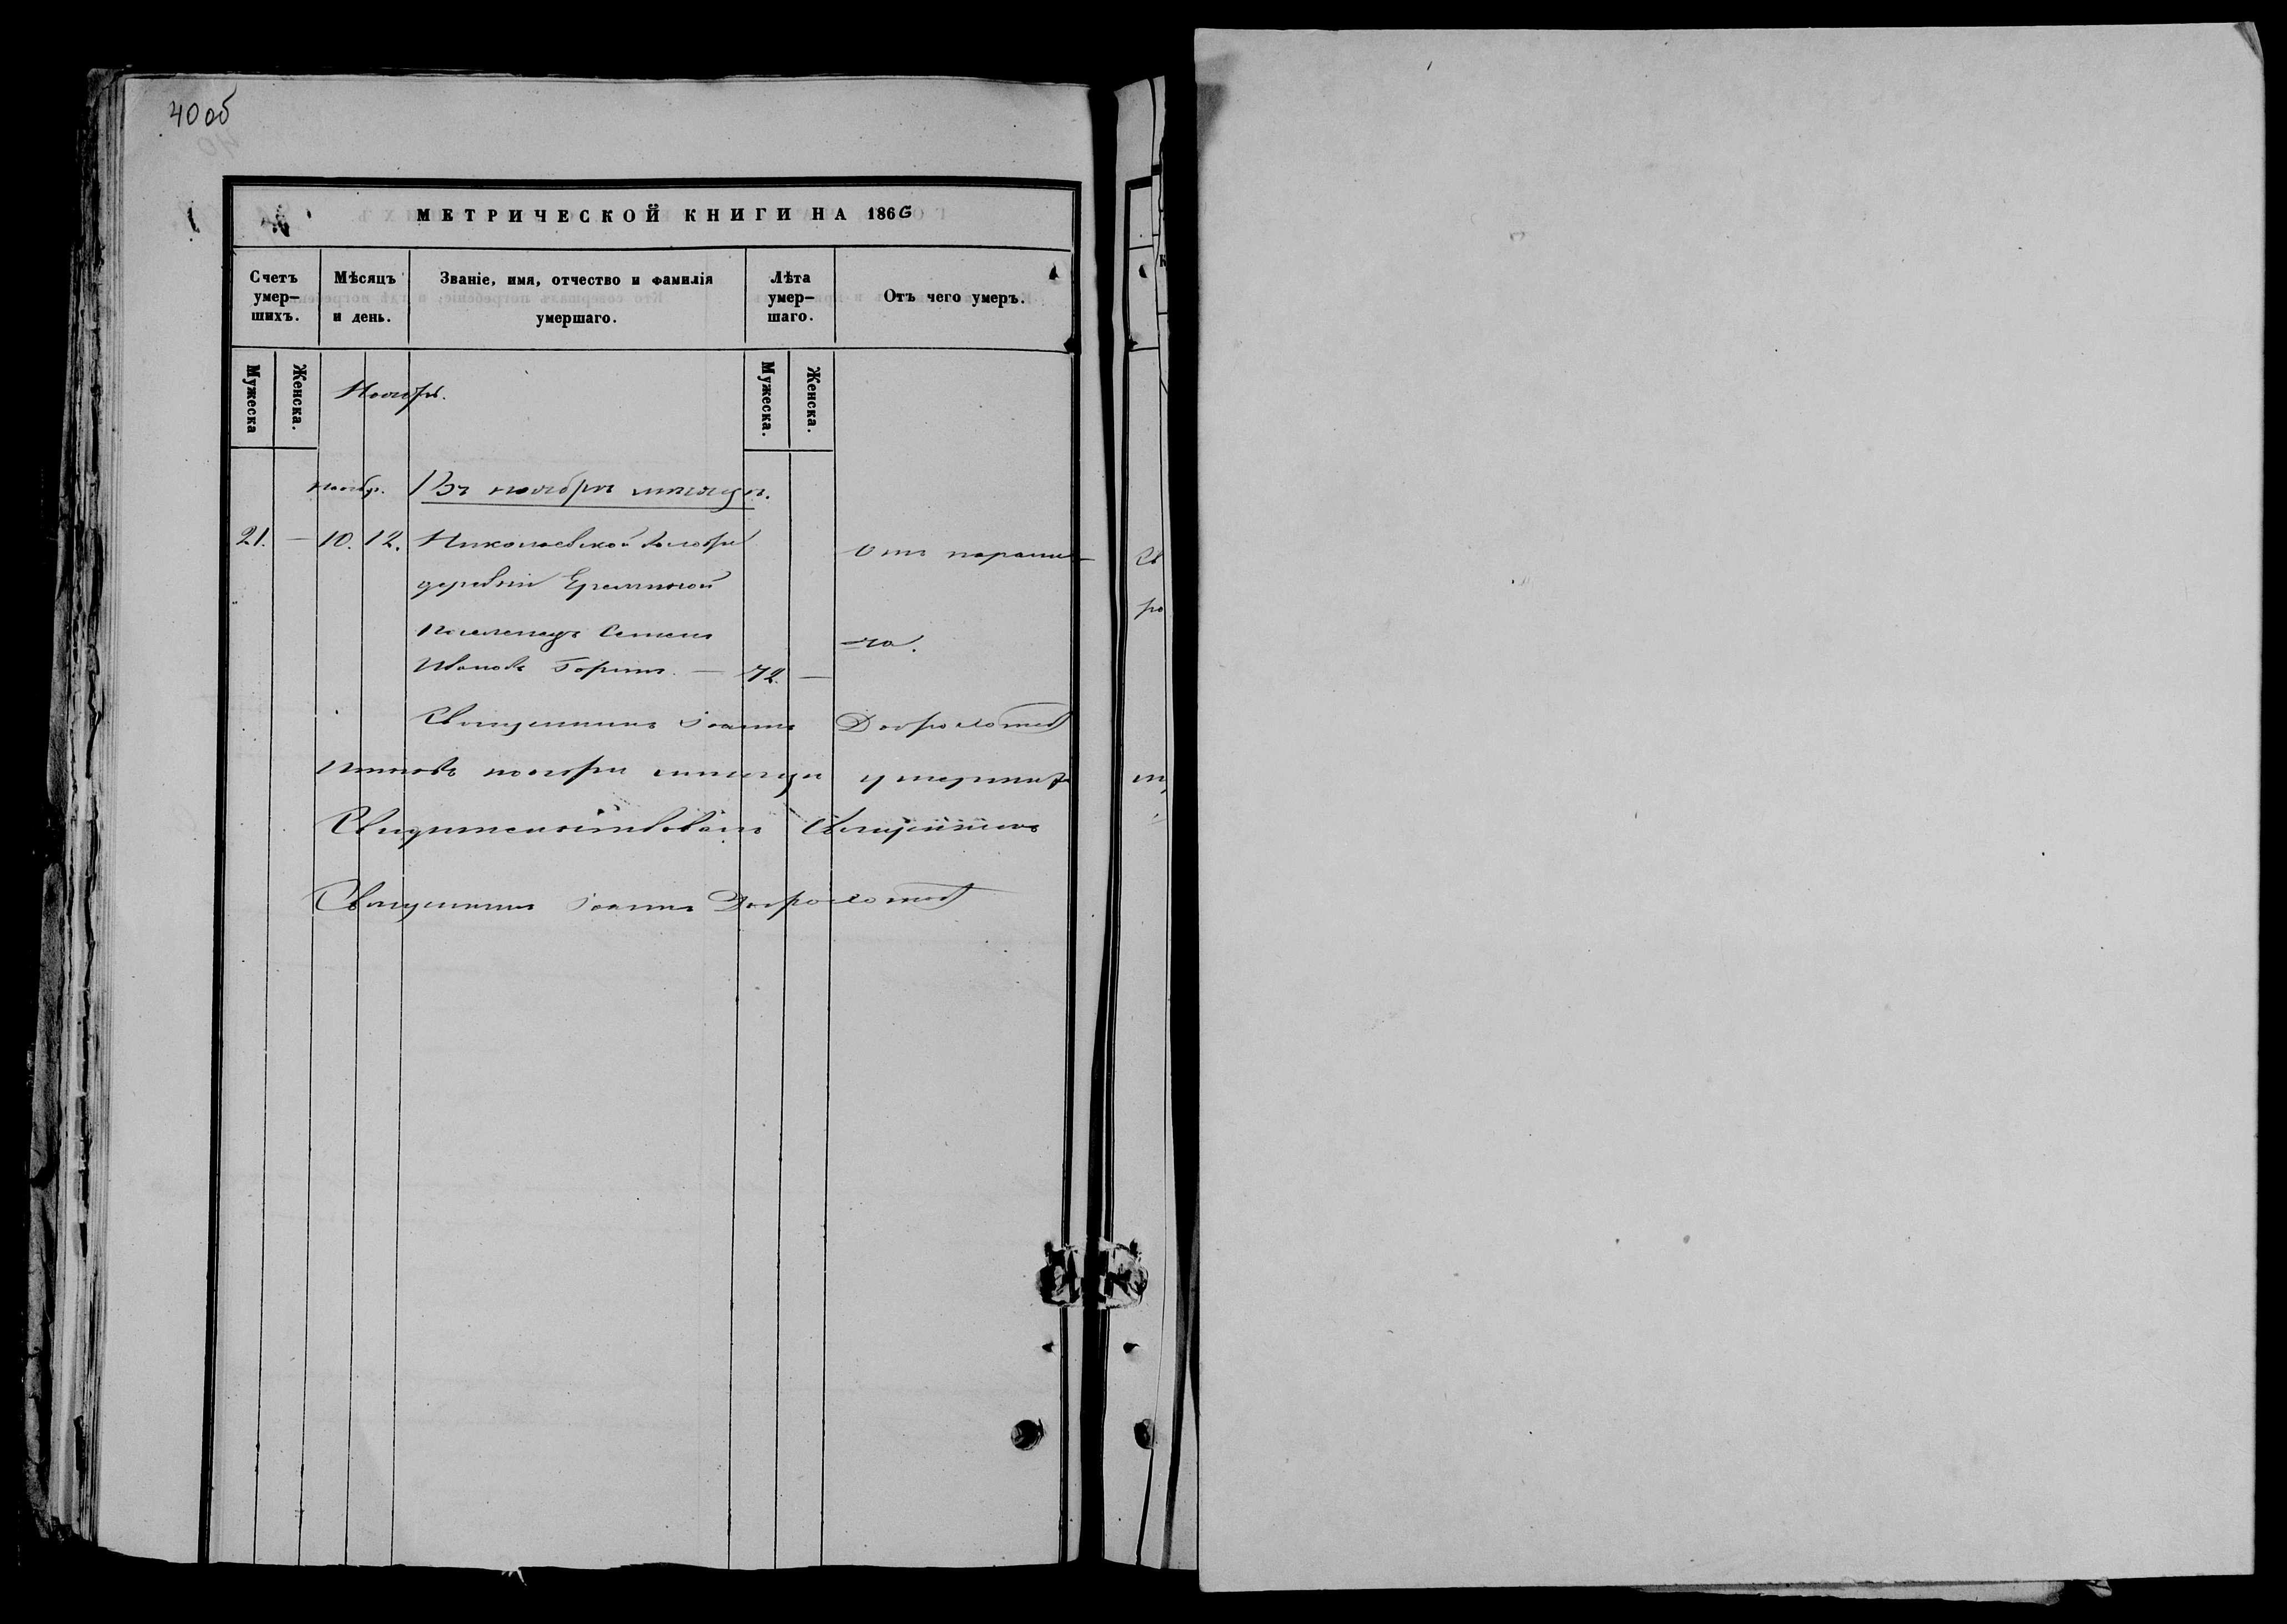 40 об
МЕТРИЧЕСКОЙ КНИГИ НА 1866
Счетъ умер- шихъ.
Мѣсяцъ и день.
Званіе, имя, отчество и фамилія умершаго.
Лѣта умер- шаго.
Отъ чего умеръ.
Мужеска
Женска.
Мужеска.
Женска.
Ноябрь.
Ноябр. Въ ноябрѣ мѣсяцѣ.
21. — 10. 12. Николаевской волости
деревни
Отъ парали-
Поселенецъ Семенъ
ча.
Ивановъ Горинъ. — 72. —
Священникъ Іоаннъ Доброхотов
Итого въ ноябрѣ мѣсяцѣ умершихъ
Свидѣтельствовалъ Священникъ
Священникъ Іоаннъ Доброхотов